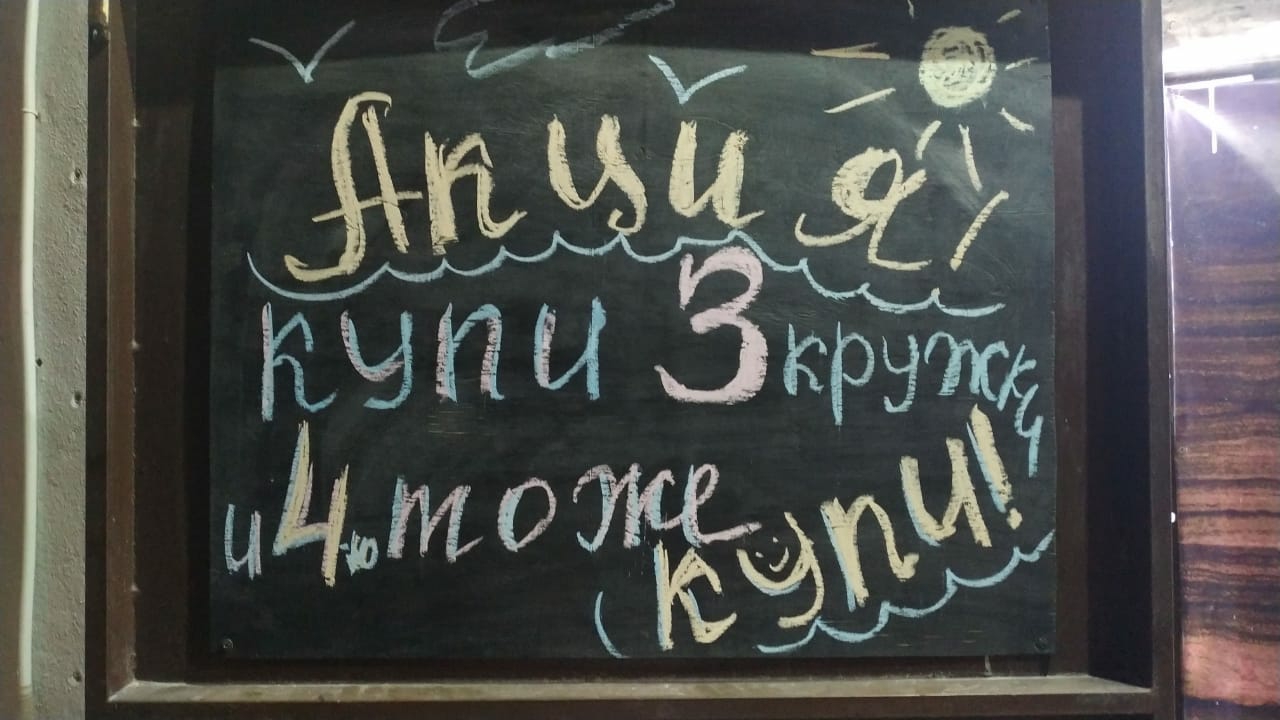 Акция!
купи 3 кружки
и 4-ю тоже
купи!